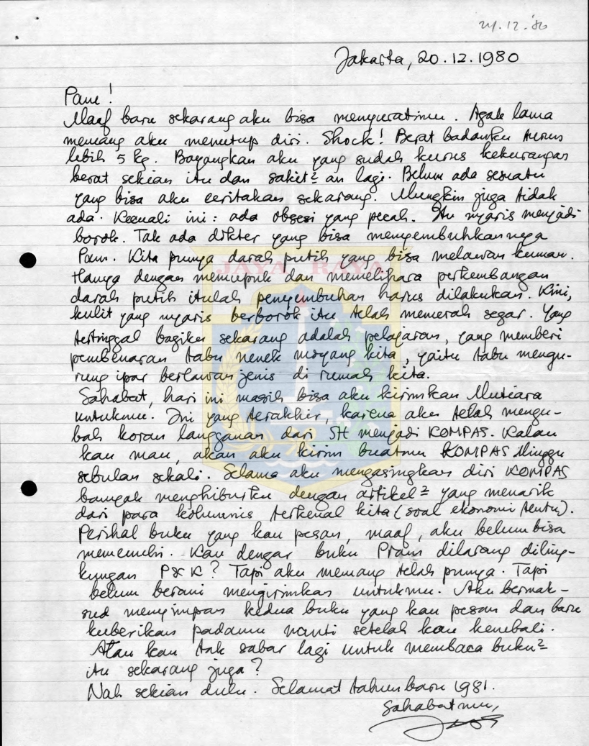 24.12.'80
Jakarta, 20.12.1980
Pam!
Maaf baru sekarang aku bisa menyuratimu. Agak lama
memang aku menutup diri. Shock! Berat badanku turus
lebih 5 kg. Bayangkan aku yang sudah kurus kekurangan
berat sekian itu dan sakit² an lagi. Belum ada sesuatu
yang bisa aku ceritakan sekarang. Mungkin juga tidak
ada. Kecuali ini: ada obsesi yang pecah. Itu nyaris menjadi
borok. Tak ada dokter yang bisa menyembuhkannya
Pam. Kita punya darah putih yang bisa melawan kuman.
Hanya dengan memupuk dan memelihara perkembangan
darah putih itulah penyembuhan harus dilakukan. Kini,
kulit yang nyaris berborok itu telah memerah segar. Yang
tertinggal bagiku sekarang adalah pelajaran, yang memberi
pembenaran tabu nenek moyang kita, yaitu tabu mengu-
rung ipar berlawan jenis di rumah kita.
Sahabat, hari ini masih bisa aku kirimkan Mutiara
untukmu. Ini yang terakhir, karena aku telah mengu-
bah koran langganan dari SH menjadi KOMPAS. Kalau
kau mau, akan aku kirim buatmu KOMPAS Minggu
sebulan sekali. Selama aku mengasingkan diri KOMPAS
banyak menghiburku dengan artikel² yang menarik
dari para kolumnis terkenal kita (soal ekonomi tentu).
Perihal buku yang kau pesan, maaf, aku belum bisa
memenuhi. Kau dengar buku Pram dilarang diling-
kungan P&K? Tapi aku memang telah punya. Tapi
belum berani mengirimkan untukmu. Aku bermak-
sud menyimpan kedua buku yang kau pesan dan baru
kuberikan padamu nanti setelah kau kembali.
Atau kau tak sabar lagi untuk membaca buku²
itu sekarang juga?
Nah sekian dulu. Selamat tahun baru 1981.
Sahabatmu,
JAYA RAYA